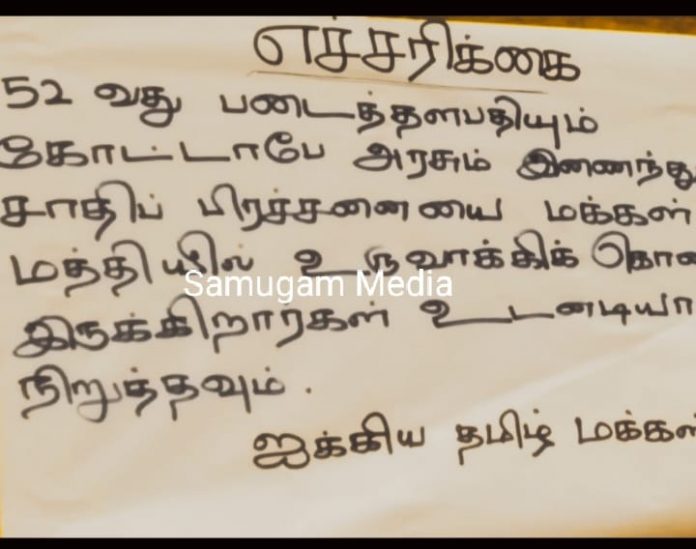 எச்சரிக்கை
52 வது படைத்தளபதியும்
கோட்டாபே அரசும் இணைந்து
சாதிப் பிரச்சனையை மக்கள்
மத்தியில் உருவாக்கிக் கொ
Samugam Media
இருக்கிறார்கள் உடனடியா
நிறுத்தவும்.
ஐக்கிய தமிழ் மக்கள்